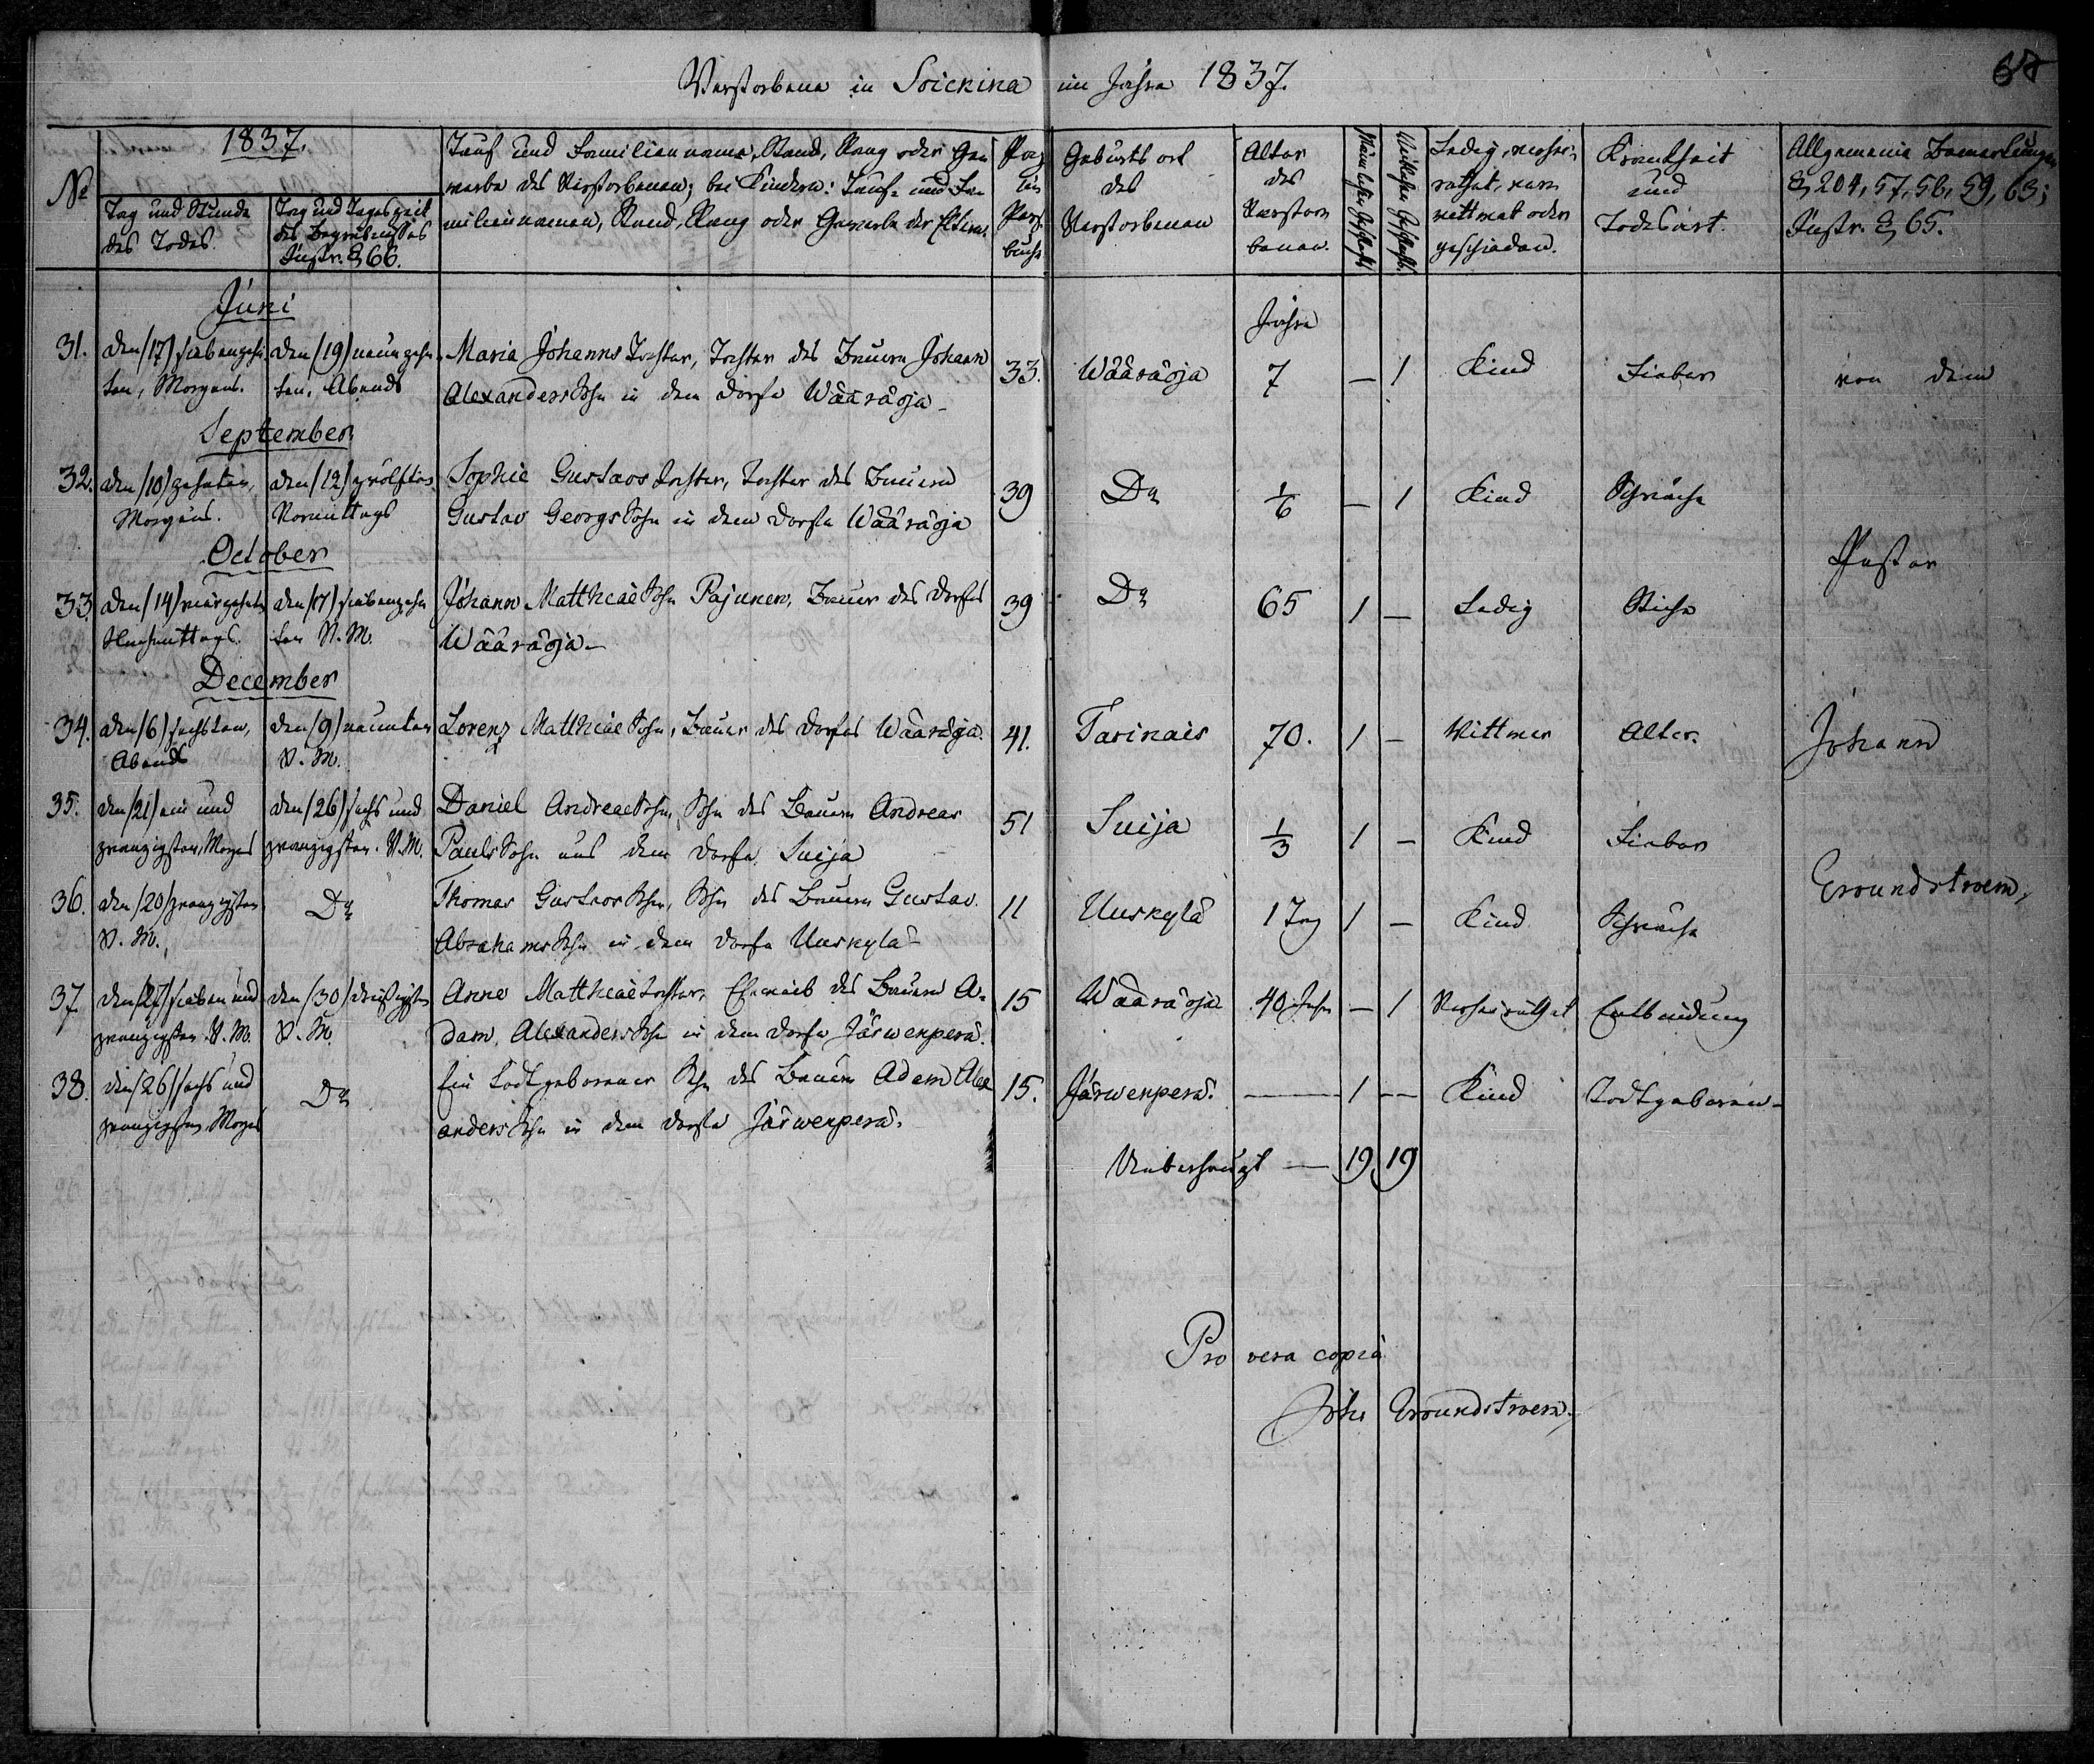 Verstorbene in Soickina im Jahre 1837.
68
No
1837.
Tag und Stunde des Todes.
Tag und Tageszeit des Begräbnisses Instr. § 66.
Tauf und Familienname, Stand, Rang oder Gewerbe des Verstorbenen; bei Kindern: Tauf- und Familiennamen, Stand, Rang oder Gewerbe der Eltern.
Pag im Pers. buche
Geburtsort des Verstorbenen
Alter des Verstorbenen.
Männlichen Geschlechts
Weiblichen Geschlechts.
Ledig, verheirathet, verwittwet oder geschieden.
Krankheit und Todesart.
Allgemeine Bemerkungen § 204, 57, 56, 59, 63; Instr. § 65.
Juni
Jahre
31. den (17) siebenzehn den (19) neunzehn Maria Johanns Tochter, Tochter des Bauern Johann 33. Wääräoja 7 — 1 Kind Fieber von dem
ten, Morgens. ten, Abends Alexanders Sohn in dem Dorfe Wäaräoja –
September
32. den (10) zehnten, den (12) zwölften Sophie Gustavs Tochter, Tochter des Bauern 39 Do 1/6 — 1 Kind Schwäche
Morgens. Vormittags Gustav Georgs Sohn in dem Dorfe Wäaräoja
Pastor
October
33. den (14) vierzehnten den (17) siebenzehn Johann Matthiae Sohn Pajunen, Bauer des Dorfes 39 Do 65 1 — Ledig Stiche
Nachmittags. ten V. M. Wääräoja –
December
34. den (6) sechsten, den (9) neunten Lorenz Matthiae Sohn, Bauer des Dorfes Wäaräoja. 41. Tarinais 70. 1 – Wittwer Alter. Johann
Abends V. M.
35. den (21) ein und den (26) sechs und Daniel Andreae Sohn, Sohn des Bauern Andreas 51 Suija 1/3 1 – Kind Fieber
zwanzigsten, Morgens zwanzigsten. V. M. Pauls Sohn aus dem Dorfe Suija
Groundstroem,
36. den (20) zwanzigsten Do Thomas Gustavs Sohn, Sohn des Bauern Gustav 11 Uuskylä 1 Tag 1 – Kind Schwäche
V. M. Abrahams Sohn in dem Dorfe Uuskylä
37. den (27) sieben und den (30) dreißigsten Anne Matthiae Tochter, Eheweib des Bauern A- 15 Wääräoja 40 Jahre – 1 Verheirathet Entbindung
zwanzigsten V. M. V. M. dam Alexanders Sohn in dem Dorfe Järwenperä.
38. den (26) sechs und Do Ein todtgeborener Sohn des Bauern Adam Alex 15. Järwenperä. — 1 — Kind Todtgeboren –
zwanzigsten, Morgens anders Sohn in dem Dorfe Järwenperä.
Ueberhaupt — 19 19
Pro vera copia
Johs Groundstroem.